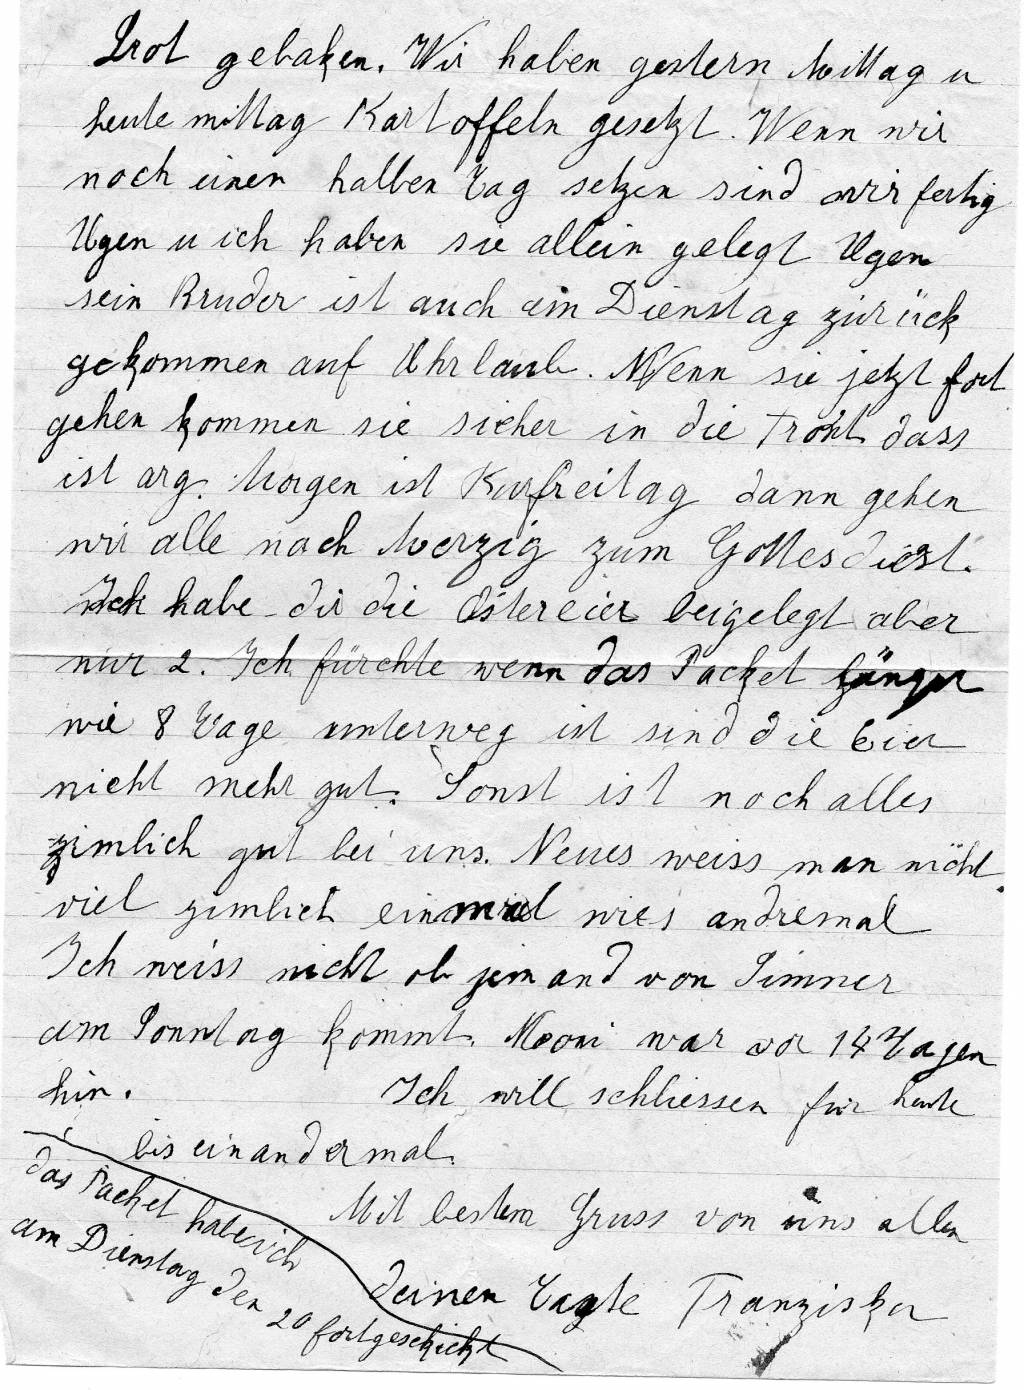 Brot gebaken. Wir haben gestern Mittag u
heute mittag Kartoffeln gesetzt. Wenn wir
noch einen halben Tag setzen sind wir fertig
Ugen u ich haben sie allein gelegt Ugen
sein Bruder ist auch am Dienstag zurück
gekommen auf Uhrlaub. Wenn sie jetzt fort
gehen kommen sie sicher in die Front dass
ist arg. Morgen ist Karfreitag dann gehen
wir alle nach Merzig zum Gottesdiest.
Ich habe dir die Ostereier beigelegt aber
nur 2. Ich fürchte wenn das Packet länger
wie 8 Tage unterweg ist sind die Eier
nicht mehr gut. Sonst ist noch alles
zimlich gut bei uns. Neues weiss man nicht
viel zimlich einmal wies andremal
Ich weiss nicht ob jemand von Simner
am Sonntag kommt. war vor 14 Tagen
hin. Ich will schliessen für heute
bis einandermal.
Mit bestem Gruss von uns allen
deinen Franziska
das Packet habe ich
am Dienstag den 20 fortgeschickt